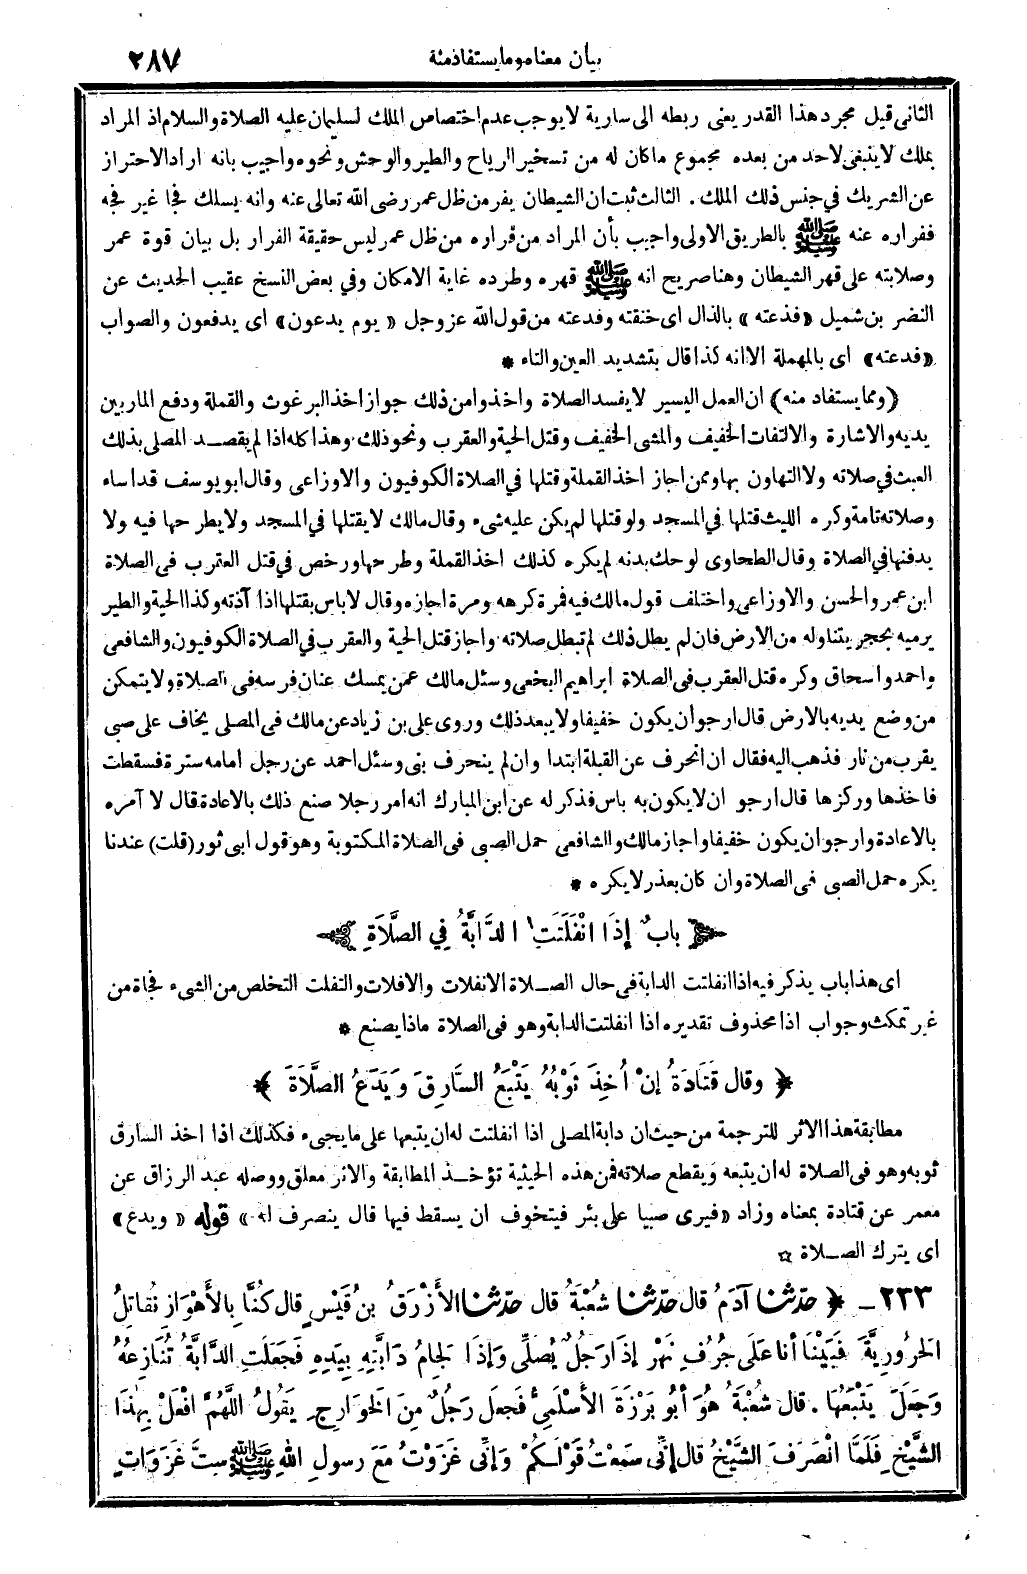 بيان معناه وما يستفاد منه
٢٨٧
الثانى قيل مجرد هذا القدر يعنى ربطه الى سارية لا يوجب عدم اختصاص الملك لسليمان عليه الصلاة والسلام اذ المراد
بملك لا ينبغى لاحد من بعده مجموع ما كان له من تسخير الرياح والطير والوحش ونحوه واجيب بانه اراد الاحتراز
عن الشريك في جنس ذلك الملك . الثالث ثبت ان الشيطان يفر من ظل عمر رضى الله تعالى عنه وانه يسلك فجا غير فجه
ففراره عنه ﷺ بالطريق الاولى واجيب بأن المراد من فراره من ظل عمر ليس حقيقة الفرار بل بيان قوة عمر
وصلابته على قهر الشيطان وهنا صريح انه ﷺ قهره وطرده غاية الامكان وفي بعض النسخ عقيب الحديث عن
النضر بن شميل «فذعته» بالذال اى خنقته وفدعته من قول الله عز وجل « يوم يدعون» اى يدفعون والصواب
«فدعته» اى بالمهملة الا انه كذا قال بتشديد العين والتاء *
(ومما يستفاد منه) ان العمل اليسير لا يفسد الصلاة واخذوا من ذلك جواز اخذ البرغوث والقملة ودفع المار بين
يديه والاشارة والالتفات الخفيف والمشى الخفيف وقتل الحية والعقرب ونحو ذلك وهذا كله اذا لم يقصد المصلى بذلك
العبث في صلاته ولا التهاون بها وممن اجاز اخذ القملة وقتلها في الصلاة الكوفيون والاوزاعى وقال ابو يوسف قد اساء
وصلاته تامة وكره الليث قتلها في المسجد ولو قتلها لم يكن عليه شىء وقال مالك لا يقتلها في المسجد ولا يطرحها فيه ولا
يدفنها في الصلاة وقال الطحاوى لو حك بدنه لم يكره كذلك اخذ القملة وطرحها ورخص في قتل العقرب فى الصلاة
ابن عمر والحسن والاوزاعى واختلف قول مالك فيه فمرة كرهه ومرة اجازه وقال لا باس بقتلها اذا آذته وكذا الحية والطير
يرميه بحجر يتناوله من الارض فان لم يطل ذلك لم تبطل صلاته واجاز قتل الحية والعقرب في الصلاة الكوفيون والشافعى
واحمد واسحاق وكره قتل العقرب فى الصلاة ابراهيم النخعى وسئل مالك عمن يمسك عنان فرسه فى الصلاة ولا يتمكن
من وضع يديه بالارض قال ارجو أن يكون خفيفا ولا يبعد ذلك وروى على بن زياد عن مالك فى المصلى يخاف على صبى
يقرب من نار فذهب اليه فقال ان انحرف عن القبلة ابتدا وان لم ينحرف بنى وسئل احمد عن رجل امامه سترة فسقطت
فاخذها وركزها قال ارجو ان لا يكون به باس فذكر له عن ابن المبارك انه امر رجلا صنع ذلك بالاعادة قال لا آمره
بالاعادة وارجو ان يكون خفيفا واجاز مالك والشافعى حمل الصبى فى الصلاة المكتوبة وهو قول ابى ثور (قلت) عندنا
يكره حمل الصبى فى الصلاة وان كان بعذر لا يكره *
باب إِذَا انْفَلَتَتِ الدَّابَّةُ فِي الصَّلَاةِ
اى هذا باب يذكر فيه اذا انفلتت الدابة فى حال الصلاة الانفلات والافلات والتفلت التخلص من الشىء فجاة من
غير تمكث وجواب اذا محذوف تقديره اذا انفلتت الدابة وهو فى الصلاة ماذا يصنع *
﴿ وقال قَتَادَةُ إنْ أُخِذَ ثَوْبُهُ يَتْبَعُ السَّارِقَ وَيَدَعُ الصَّلَاةَ ﴾
مطابقة هذا الاثر للترجمة من حيث ان دابة المصلى اذا انفلتت له ان يتبعها على ما يجىء فكذلك اذا اخذ السارق
ثوبه وهو فى الصلاة له ان يتبعه ويقطع صلاته فمن هذه الحيثية تؤخذ المطابقة والاثر معلق ووصله عبد الرزاق عن
معمر عن قتادة بمعناه وزاد «فيرى صبيا على بئر فيتخوف ان يسقط فيها قال ينصرف له» قوله « ويدع»
اى يترك الصلاة ☆
٢٣٣ – ﴿ حدّثنا آدَمُ قال حدّثنا شُعْبَةُ قال حدّثنا الأَزْرَقُ بنُ قَيْسٍ قال كُنَّا بِالأَهْوَازِ نُقَاتِلُ
الحَرُورِيَّةَ فَبَيْنَا أنا عَلَى جُرُفِ نَهْرٍ إذَا رَجُلٌ يُصَلِّي وَإذَا لِجَامُ دَابَّتِهِ بِيَدِهِ فَجَعَلَتِ الدَّابَّةُ تُنَازِعُهُ
وَجَعَلَ يَتْبَعُهَا . قال شُعْبَةُ هُوَ أبُو بَرْزَةَ الأَسْلَمِيُّ فَجعلَ رَجُلٌ مِنَ الخَوَارِجِ يَقُولُ اللَّهُمَّ افْعَلْ بِهٰذَا
الشَّيْخِ فَلَمَّا انْصَرَفَ الشَّيْخُ قال إنِّي سَمِعْتُ قَوْلَكُمْ وَإنِّي غَزَوْتُ مَعَ رسولِ اللهِ ﷺ سِتَّ غَزَوَاتٍ